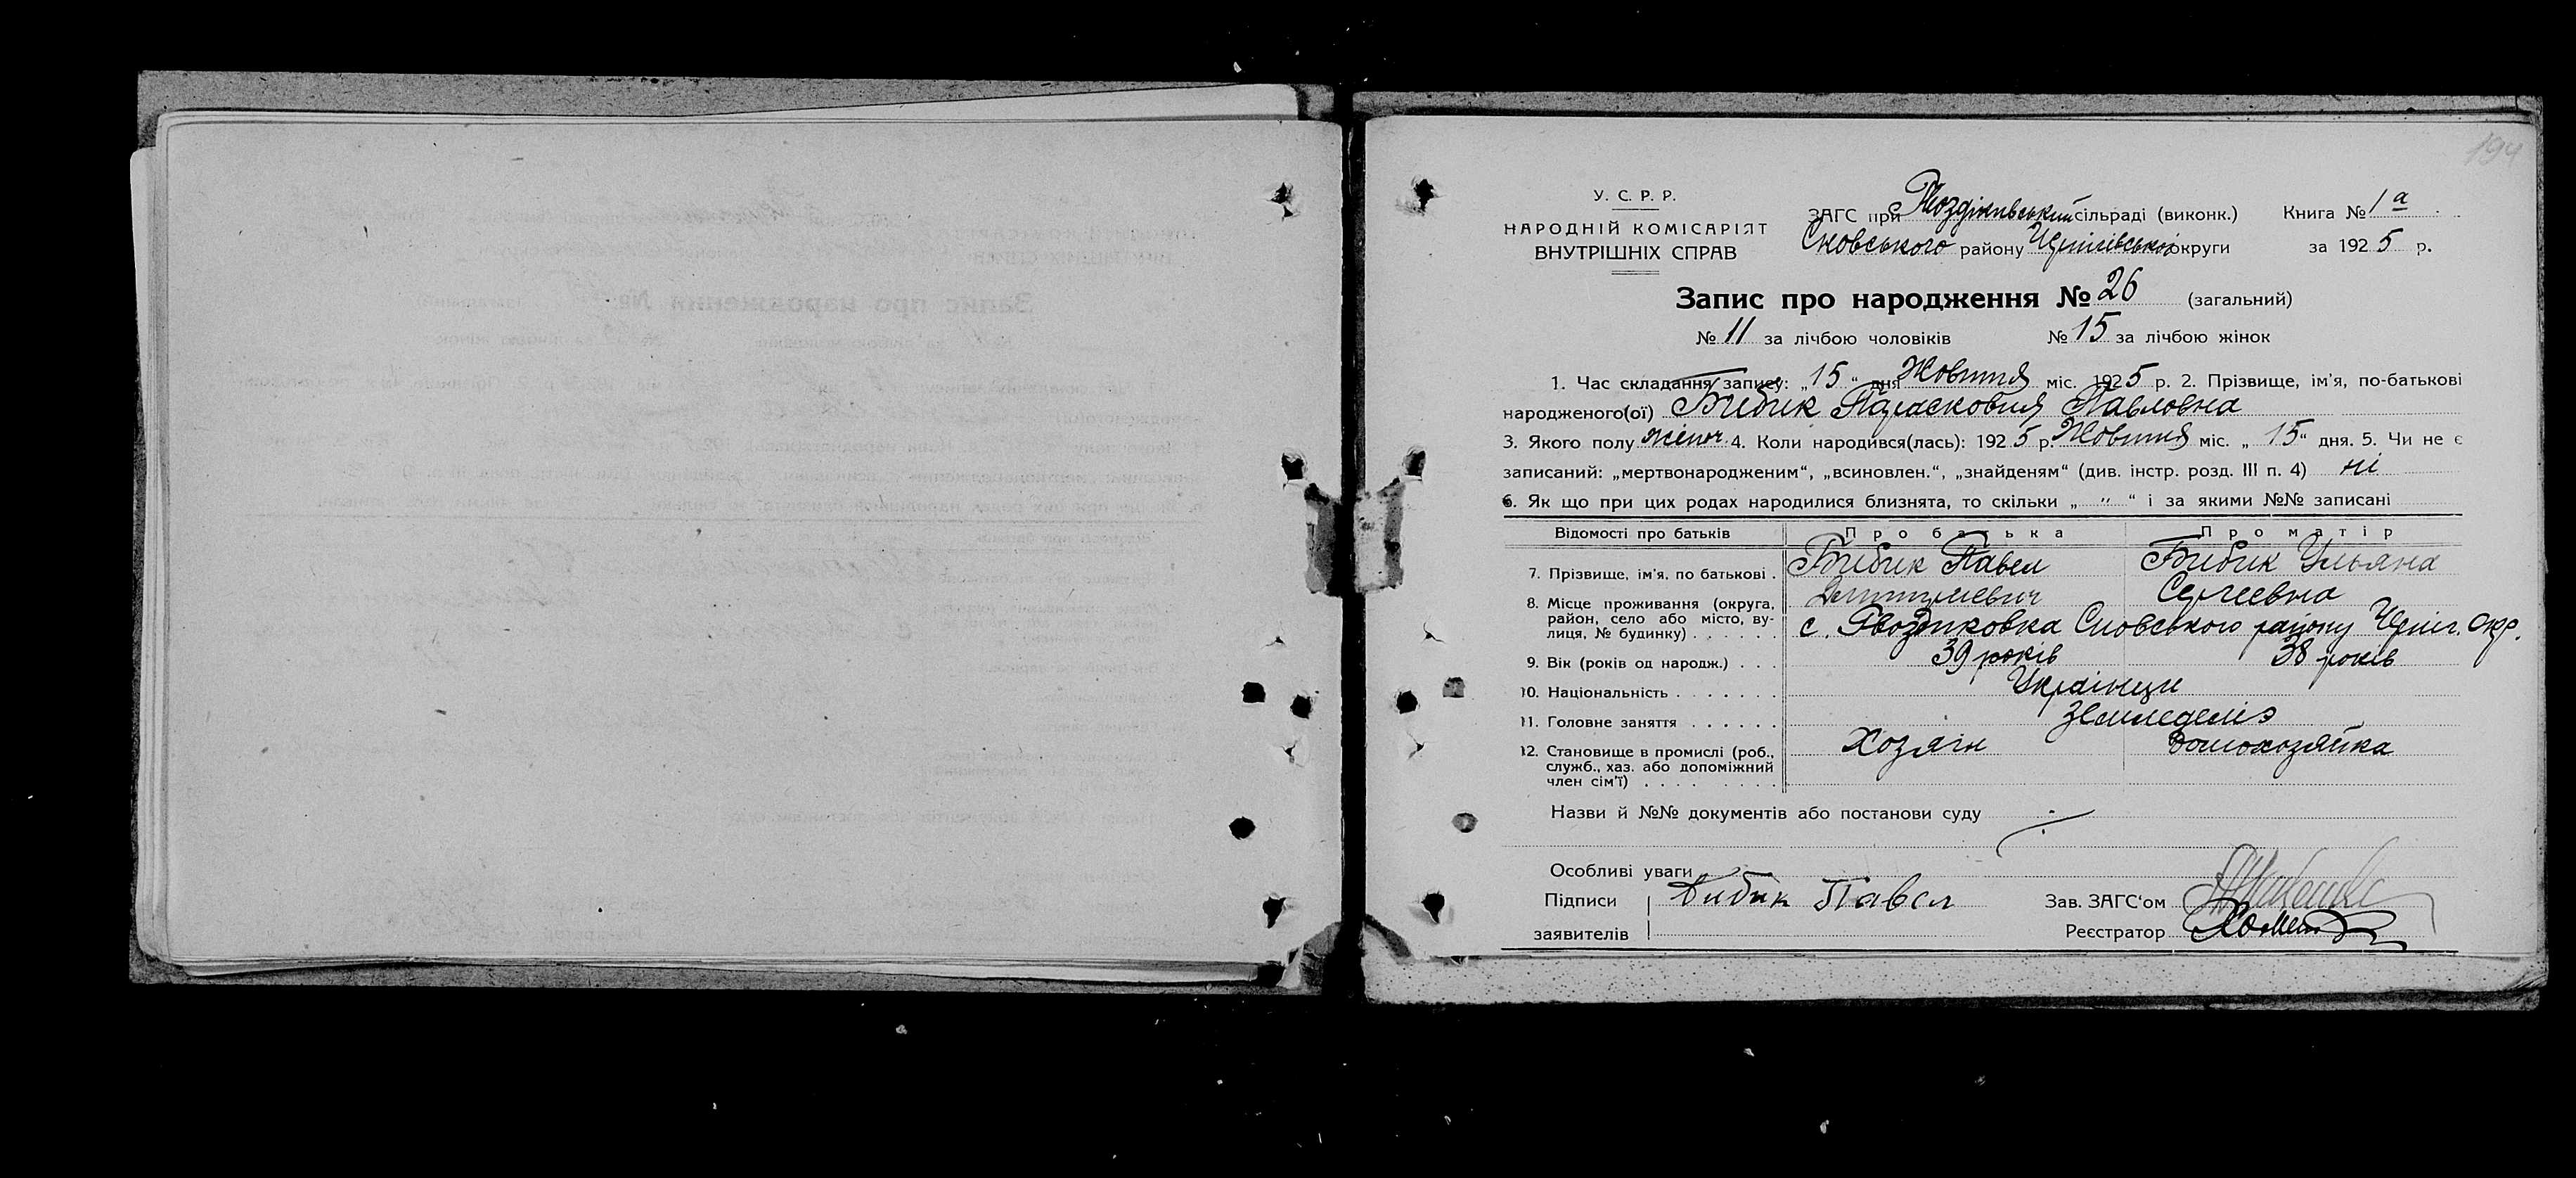 194
У. С. Р. Р.
НАРОДНІЙ КОМІСАРІЯТ
ВНУТРІШНІХ СПРАВ
ЗАГС при Гвоздіківський сільраді (виконк.) Книга № 1а
Сновського району Чернігівської округи за 1925 р.
Запис про народження № 26 (загальний)
№ 11 за лічбою чоловіків № 15 за лічбою жінок
1. Час складання запису: „15“ дня Жовтня міс. 1925 р. 2. Прізвище, ім'я, по-батькові
народженого(ої) Бибик Парасковия Павловна
3. Якого полу жіноч. 4. Коли народився(лась): 1925 р. Жовтня міс. „15“ дня. 5. Чи не є
записаний: „мертвонародженим“, „всиновлен.“, „знайденям“ (див. інстр. розд. III п. 4) ні
6. Як що при цих родах народилися близнята, то скільки „ " “ і за якими №№ записані
Відомості про батьків Про батька Про матір
7. Прізвище, ім'я, по батькові . Бибик Павел Бибик Ульяна
Дмитриевич Сергеевна
8. Місце проживання (округа, район, село або місто, ву-
лиця, № будинку) . . . . . . с. Гвоздиковка Сновського району Черніг. окр.
9. Вік (років од народж.) . . . 39 років 38 років
10. Національність . . . . . . . Українци
11. Головне заняття . . . . . . Земледеліэ
12. Становище в промислі (роб., Хозяін домохозяйка
служб., хаз. або допоміжний
член сім'ї) . . . . . . . .
Назви й №№ документів або постанови суду
Особливі уваги
Підписи Бибик Павел Зав. ЗАГС'ом
заявителів Реєстратор